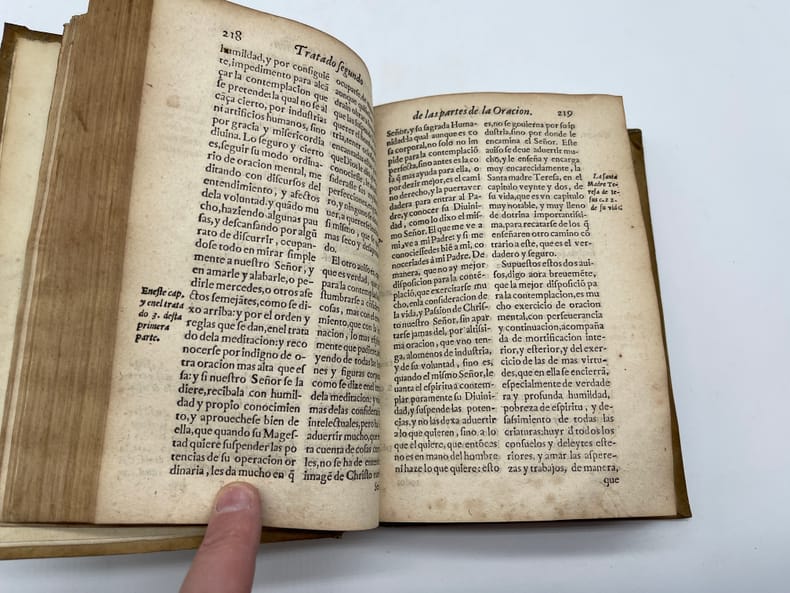 218
Tratado segundo
humildad, y por consiguiẽ
te, impedimento para alcã
çar la contemplacion que
se pretende: la qual no se al
caça cierto, por industrias
ni artificios humanos, sino
por gracia y misericordia
diuina. Lo seguro y cierto
es, seguir su modo ordina-
rio de oracion mental, me
ditando con discursos del
entendimiento, y afectos
dela voluntad: y quãdo mu
cho, haziendo algunas pau
sas, y descansando por algũ
rato de discurrir, ocupan-
dose todo en mirar simple
mente a nuestro Señor, y
en amarle y alabarle, o pe-
dirle mercedes, o otros afe
ctos semejãtes, como se di-
xo arriba: y por el orden y
reglas que se dan, enel trata
do dela meditacion: y reco
nocerse por indigno de o-
tra oracion mas alta que es
sa: y si nuestro Señor se la
diere, recibala con humil-
dad y propio conocimien
to, y aprouechese bien de
ella, que quando su Mages-
tad quiere suspender las po
tencias de su operacion or
dinaria, les da mucho en q̃
En este cap.
y enel trata
do 3. desta
primera
parte.
ocuparse
aunque
do.
El otro auiso
que es verdad, que
para la contemplac
stumbrarse a
cosas, mas con el
miento, que con la
nacion, lo mas
mente que pudiere
yendo de todas las
nes y figuras corp
como se dize enel
dela meditacion: y
mas delas considera
intelectuales, pero ha
aduertir mucho, que
ra cuenta de cosas
les, no se ha de enten
imagẽ de Christo nue
Se
de las partes de la Oracion.
219
Señor, y su sagrada Huma-
nidad: la qual aunque es co
sa corporal, no solo no im
pide para la contemplaciõ
perfecta, sino antes es la co
sa q̃ mas ayuda para ella, o
por dezir mejor, es el cami
no derecho, y la puerta ver
dadera para entrar al Pa-
dre, y conocer su Diuini-
dad, como lo dixo el mis-
mo Señor. El que me ve a
mi, ve a mi Padre: y si me
conociessedes biẽ a mi, co
noceriades a mi Padre. De
manera, que no ay mejor
disposicion para la conté-
plació, que exercitarse mu
cho, en la consideracion de
la vida, y Passion de Chris-
to nuestro Señor, sin apar
tarse jamas del, por altissi
ma oracion, que vno ten-
ga, alomenos de industria,
y de su voluntad, sino es,
quando el mismo Señor, le
uanta el espiritu a contem-
plar puramente su Diuini-
dad, y suspende las poten-
cias, y no las dexa aduertir
a lo que quieren, sino a lo
que el quiere, que entóces
no es en mano del hombre
ni haze lo que quiere: esto
es, no se gouierna por su in
dustria, sino por donde le
encamina el Señor. Este
auiso se deue aduertir mu-
cho, y le enseña y encarga
muy encarecidamente, la
Santa madre Teresa, en el
capitulo veynte y dos, de
su vida, que es vn capitulo
muy notable, y muy lleno
de dotrina importantissi-
ma, para recatarse de los q̃
enseñaren otro camino có
trario a este, que es el ver-
dadero y seguro.
Supuestos estos dos aui-
sos, digo aora breuemẽte,
que la mejor disposició pa
ra la contemplacion, es mu
cho exercicio de oracion
mental, con perseuerancia
y continuacion, acompaña
da de mortificacion inte-
rior, y esterior, y del exer-
cicio de las mas virtu-
des, que en ella se encierrã,
especialmente de verdade
ra y profunda humildad,
pobreza de espiritu, y de-
safsimiento de todas las
criaturas; huyr d̃ todos los
consuelos y deleytes este-
riores, y amar las aspere-
zas y trabajos, de manera,
que
La santa
Madre Te-
resa de Ie-
sus c. 22.
de su vida.